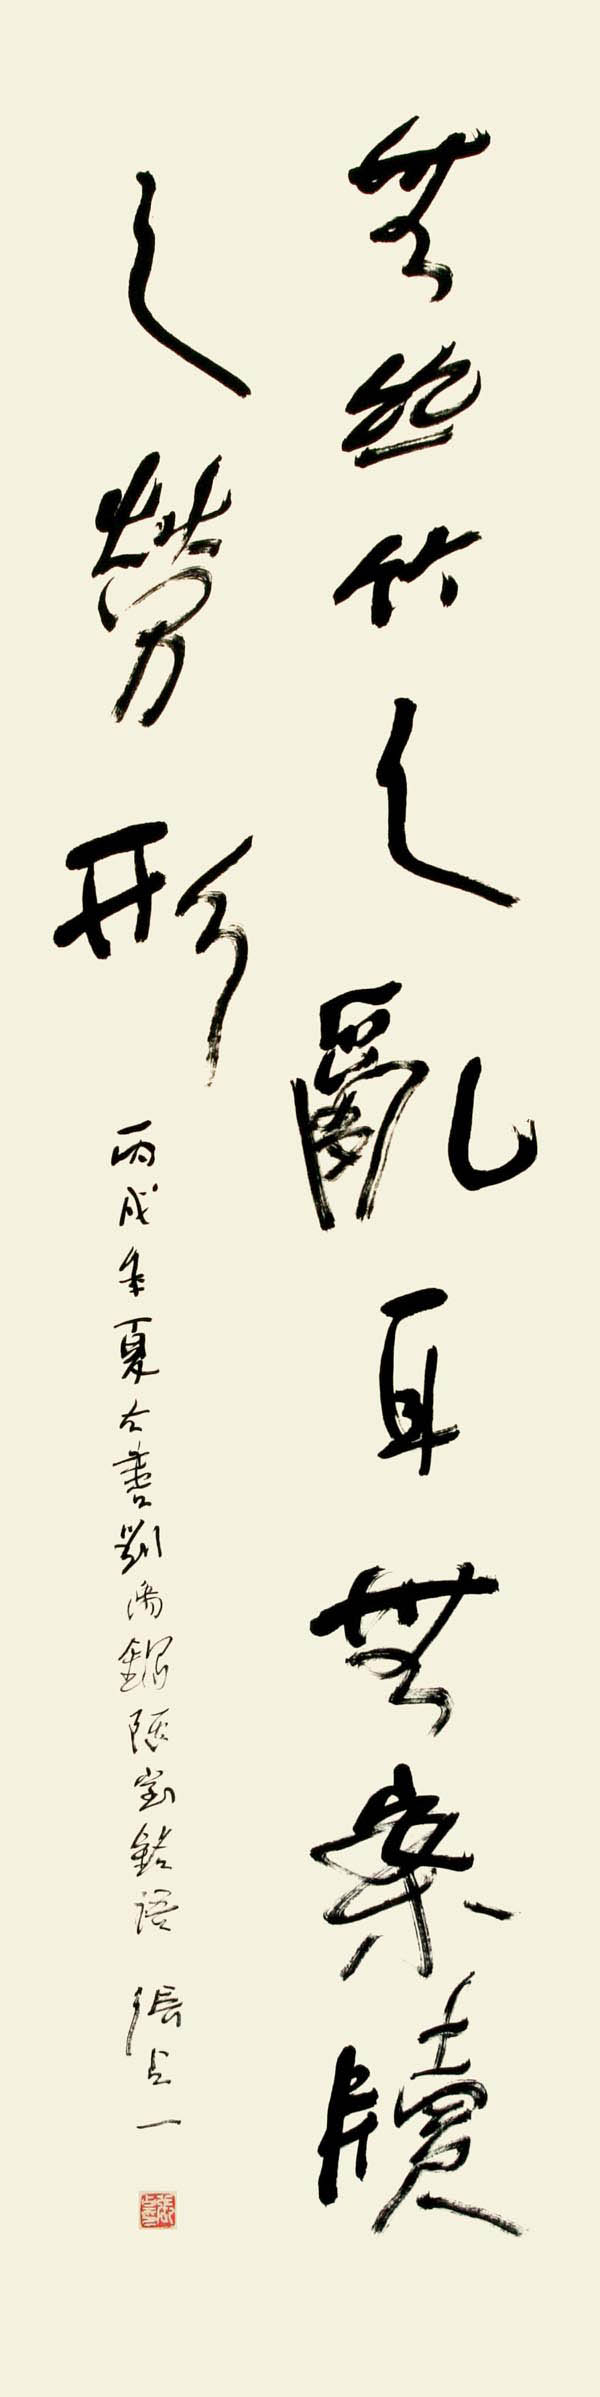 無丝竹之亂耳無案牘
之勞形
丙戌年夏大書劉禹錫陋室銘語 張上一